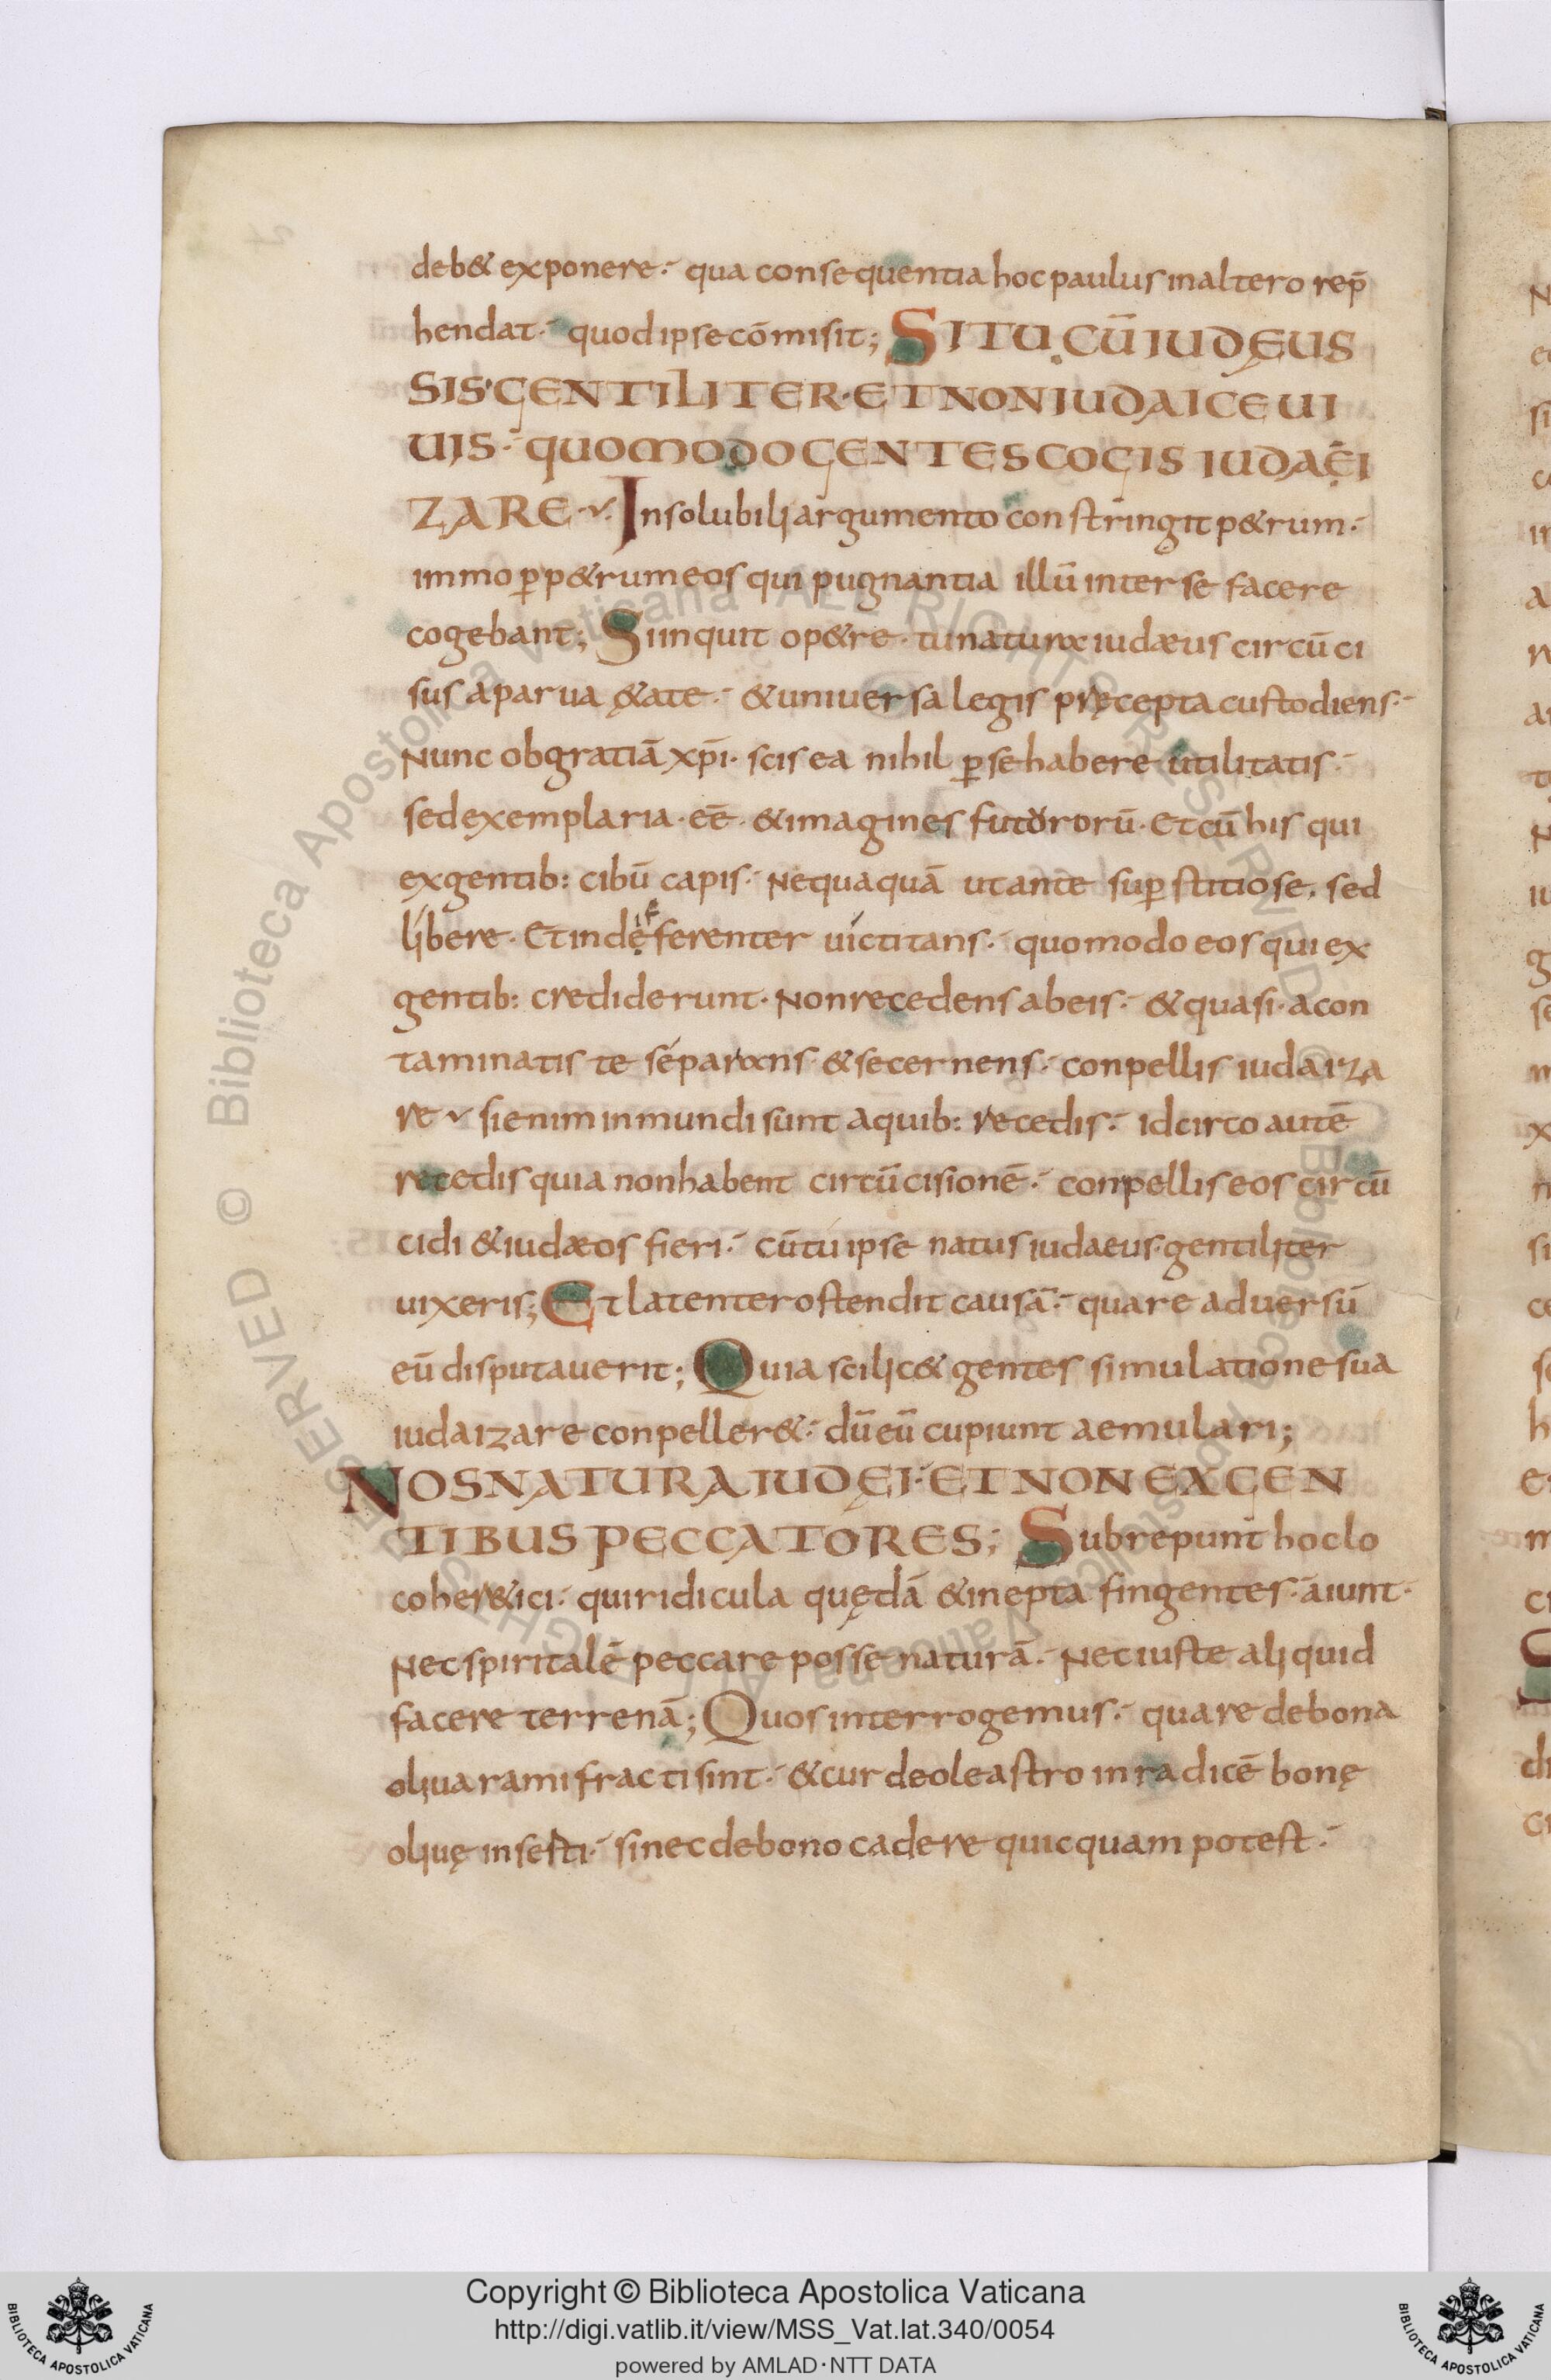 deb& exponere·- qua consequentia hoc paulus in altero rep̄
hendat·- quod ipse cōmisit; SI TU. CŪ IUDĘUS
SIS·GENTILITER·ET NON IUDAICE UI
UIS·- QUOMODO GENTES COGIS IUDAĖI
ZARE·~· Insolubili argumento constringit p&rum·-
immo ꝑ p&rum eos qui pugnantia illū inter se facere
cogebant; Si inquit o p&re· tu natura iudæus circūci
sus a parua ę&ate·- & uniuersa legis pręcepta custodiens·-
Nunc ob gratiā xp̄i· scis ea nihil ꝑ se habere utilitatis·-
sed exemplaria· eē· & imagines futurorū· Et cū his qui
ex gentib: cibū capis·- Nequaquā ut ante suꝑstitiose. sed
libere· Et indęiFferenter uictitans·- quomodo eos qui ex
gentib: crediderunt· Non recedens ab eis·- & quasi· a con
taminatis te séparans· & secernens·- conpellis iudaiza
re ~ si enim inmundi sunt a quib: recedis·- idcirco autē
recedis quia non habent circūcisionē·- conpellis eos circū
cidi & iudæos fieri·- cū tu ipse natus iudaeus·gentiliter
uixeris; Et latenter ostendit causā·- quare aduersū
eū disputauerit; Quia scilic& gentes simulatione sua
iudaizare conpeller&·- dū eū cupiunt aemulari;
NOS NATURA IUDĘI·-ET NON EX GEN
TIBUS PECCATORES; Subrepunt hoc lo
co her&ici·- qui ridicula quędā & inepta fingentes·- aiunt·
Nec spiritalē peccare posse naturā·- Nec iuste aliquid
facere terrenā; Quos interrogemus·- quare de bona
oliua rami fracti sint·- & cur de oleastro in radicē bonę
oliuę inserti·- si nec de bono cadere quicquam potest·-
Copyright © Biblioteca Apostolica Vaticana
http://digi.vatlib.it/view/MSS_Vat.lat.340/0054
powered by AMLAD·NTT DATA
BIBLIOTECA APOSTOLICA VATICANA
BIBLIOTECA APOSTOLICA VATICANA